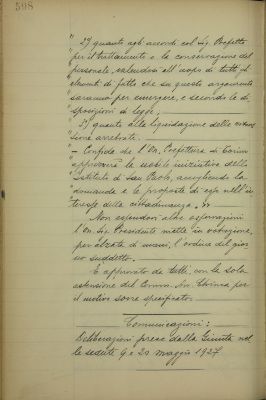 508
" 2) quanto agli accordi col Sig. Prefetto
" per il trattamento e la conservazione del
" personale, valendosi all'uopo di tutti gli
" elementi di fatto che su questo argomento
" saranno per emergere, e secondo le di
" sposizioni di legge;
" 3) quanto alla liquidazione delle
" sioni arretrati.
" - Confida che l'On. Prefettura di Torino
" approverà la nobile iniziativa dello
" Istituto di San Paolo, accogliendo la
" domanda e le proposte di esso nell'in
" teresse della cittadinanza. "
Non essendovi altre osservazioni
l'On. Sig. Presidente mette in votazione,
per alzata di mano, l'ordine del gior
no suddetto.
È approvato da tutti, con la sola
astensione del Comm. Avv. per
il motivo sovra specificato.
Comunicazioni:
Deliberazioni prese dalla Giunta nel
le sedute 9 e 23 maggio 1927